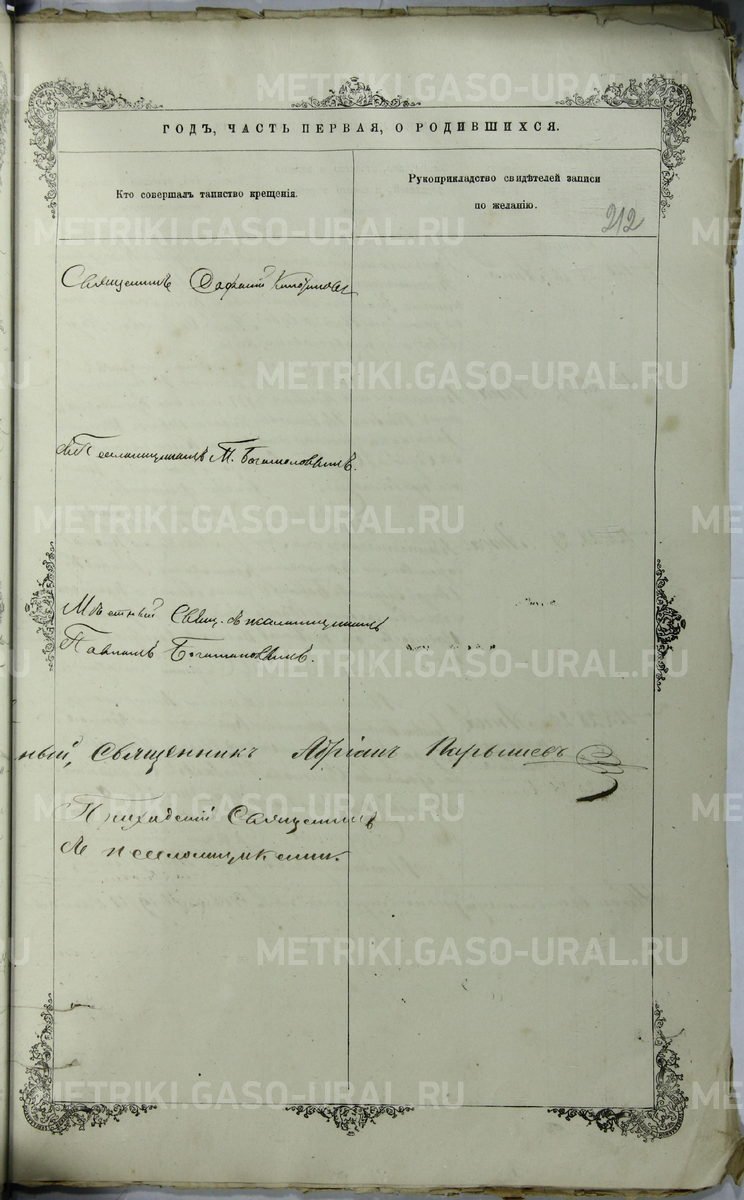 METRIKI.GASO-URAL.RU
ГОДЪ, ЧАСТЬ ПЕРВАЯ, О РОДИВШИХСЯ.
Кто совершалъ таинство крещенія.
Рукоприкладство свидѣтелей записи
по желанію.
212
Священникъ
М. Богомоловымъ.
Мѣстный Свящ. съ псаломщикомъ
Богомоловымъ.
ный, Священникъ Адріанъ
Приходский Священникъ
съ псаломщикомъ.